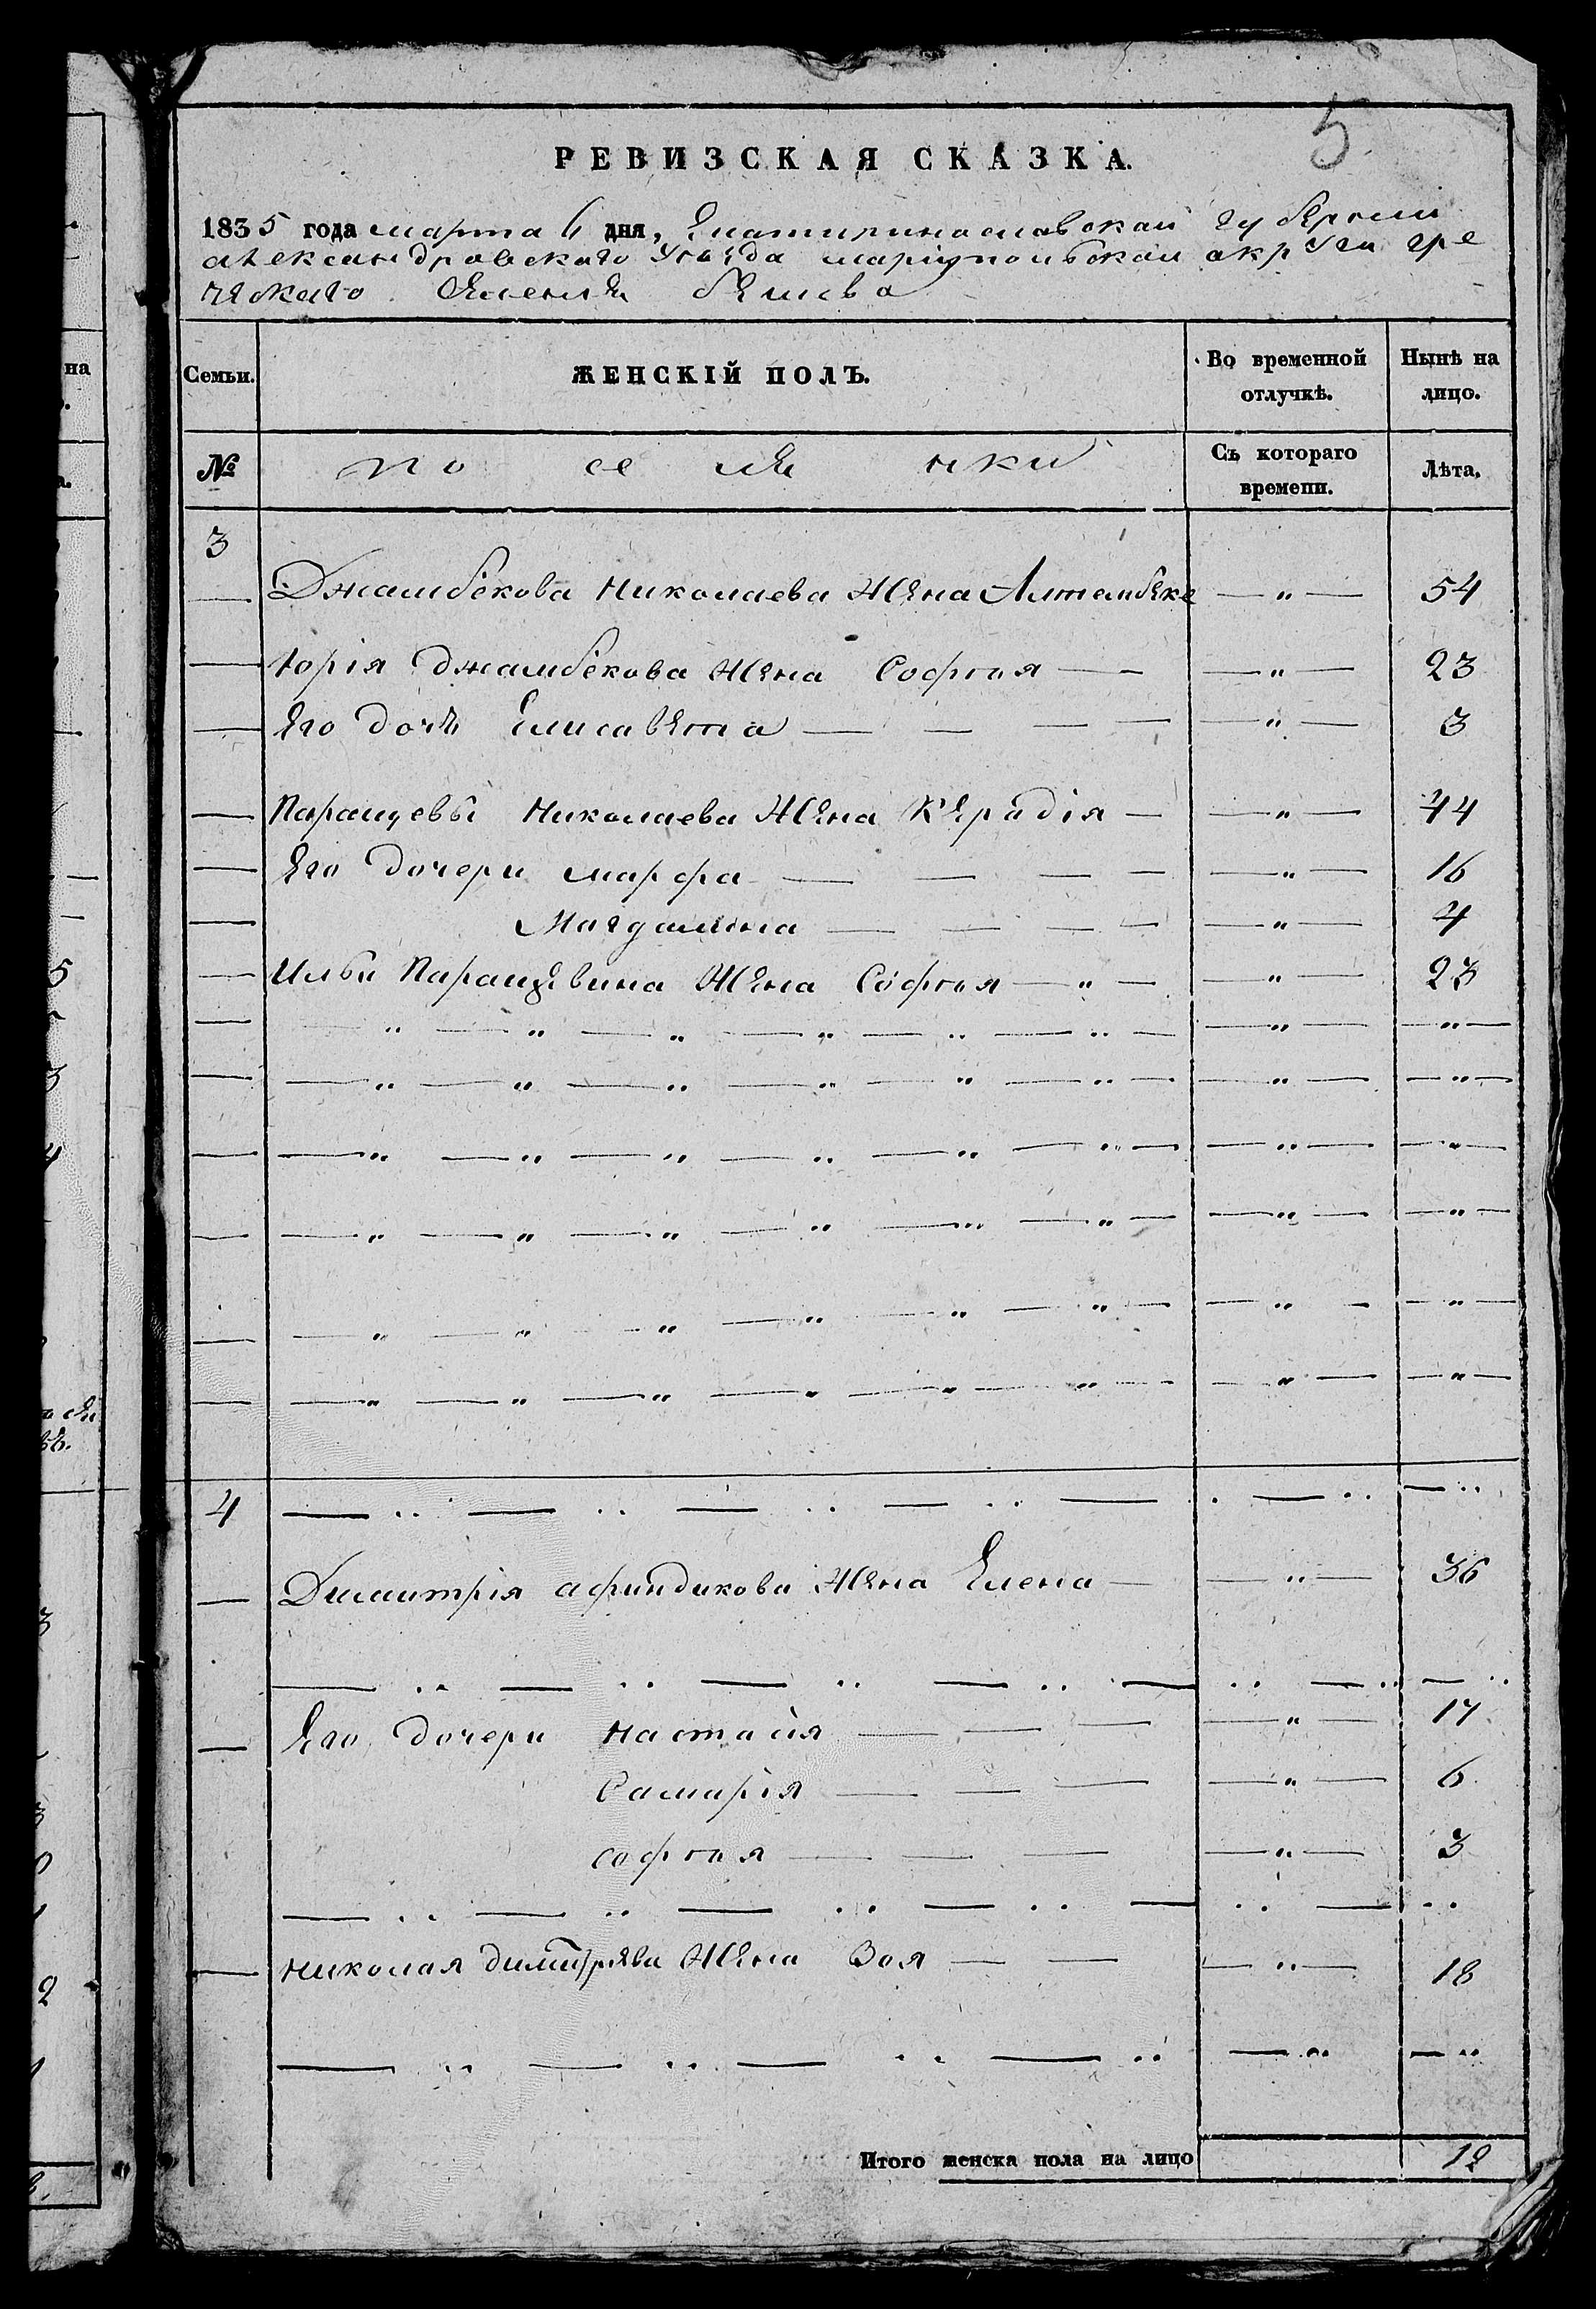 5
РЕВИЗСКАЯ СКАЗКА.
1835 года марта 6 дня, Екатиринославской губернии
александровского Уезда мариупольской округи гре
ческаго Селения бешева
Семьи. ЖЕНСКІЙ ПОЛЪ. Во временной отлучкѣ. Нынѣ на лицо.
№ по се ля нки Съ котораго времени. Лѣта.
3
— Джамбекова Николаева Жена — " — 54
— Юрія Джамбекова Жена Софтия — — " — 23
— Его дочь Елисавета — — — — — " — 3
— Паращевы Николаева Жена Керадія — — " — 44
— Его дочери марфа — — — — — " — 16
— Магдалина — — — — — " — 4
— Ильи Паращевина Жена София — " — — " — 23
4
— Дімитрія афиндикова Жена Елена — — " — 36
— Его дочери Настасія — — — — " — 17
Самирія — — — — " — 6
София — — — — " — 3
— николая димитрева Жена Зоя — — — " — 18
Итого женска пола на лицо 12
на
5
3
4
3
2